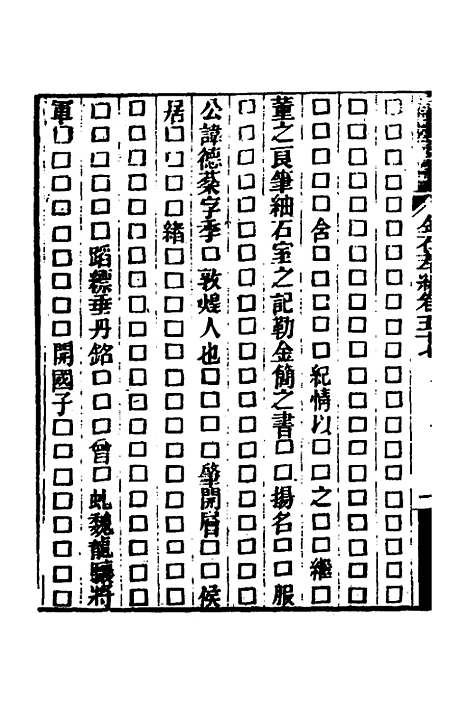 金石萃編卷五十七
□□□□□□□□□□□□□□□□□□□□□
□□□□□□□□□□□□□□□□□□□□□
□□□□□含□□□□□紀情以□□之□□繼□
董之良筆紬石室之記勒金簡之書□□揚名□□服
□□□□□□□□□□□□□□□□□□□□□
公諱德蔡字季□敦煌人也□□□□肇開曆□□侯
居□□□□緒□□□□□□□□□□□□□□□
□□□□□□□□□□□□□□□□□□□□□
□□□□□□蹈標垂丹銘□□□曾□虬魏龍驤將
軍□□□□□□□□□開國子□□□□□□□□